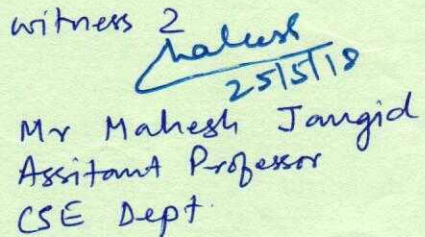 witness 2
Mahesh
25/5/18
Mr Mahesh Jangid
Assitant Professor
CSE Dept.